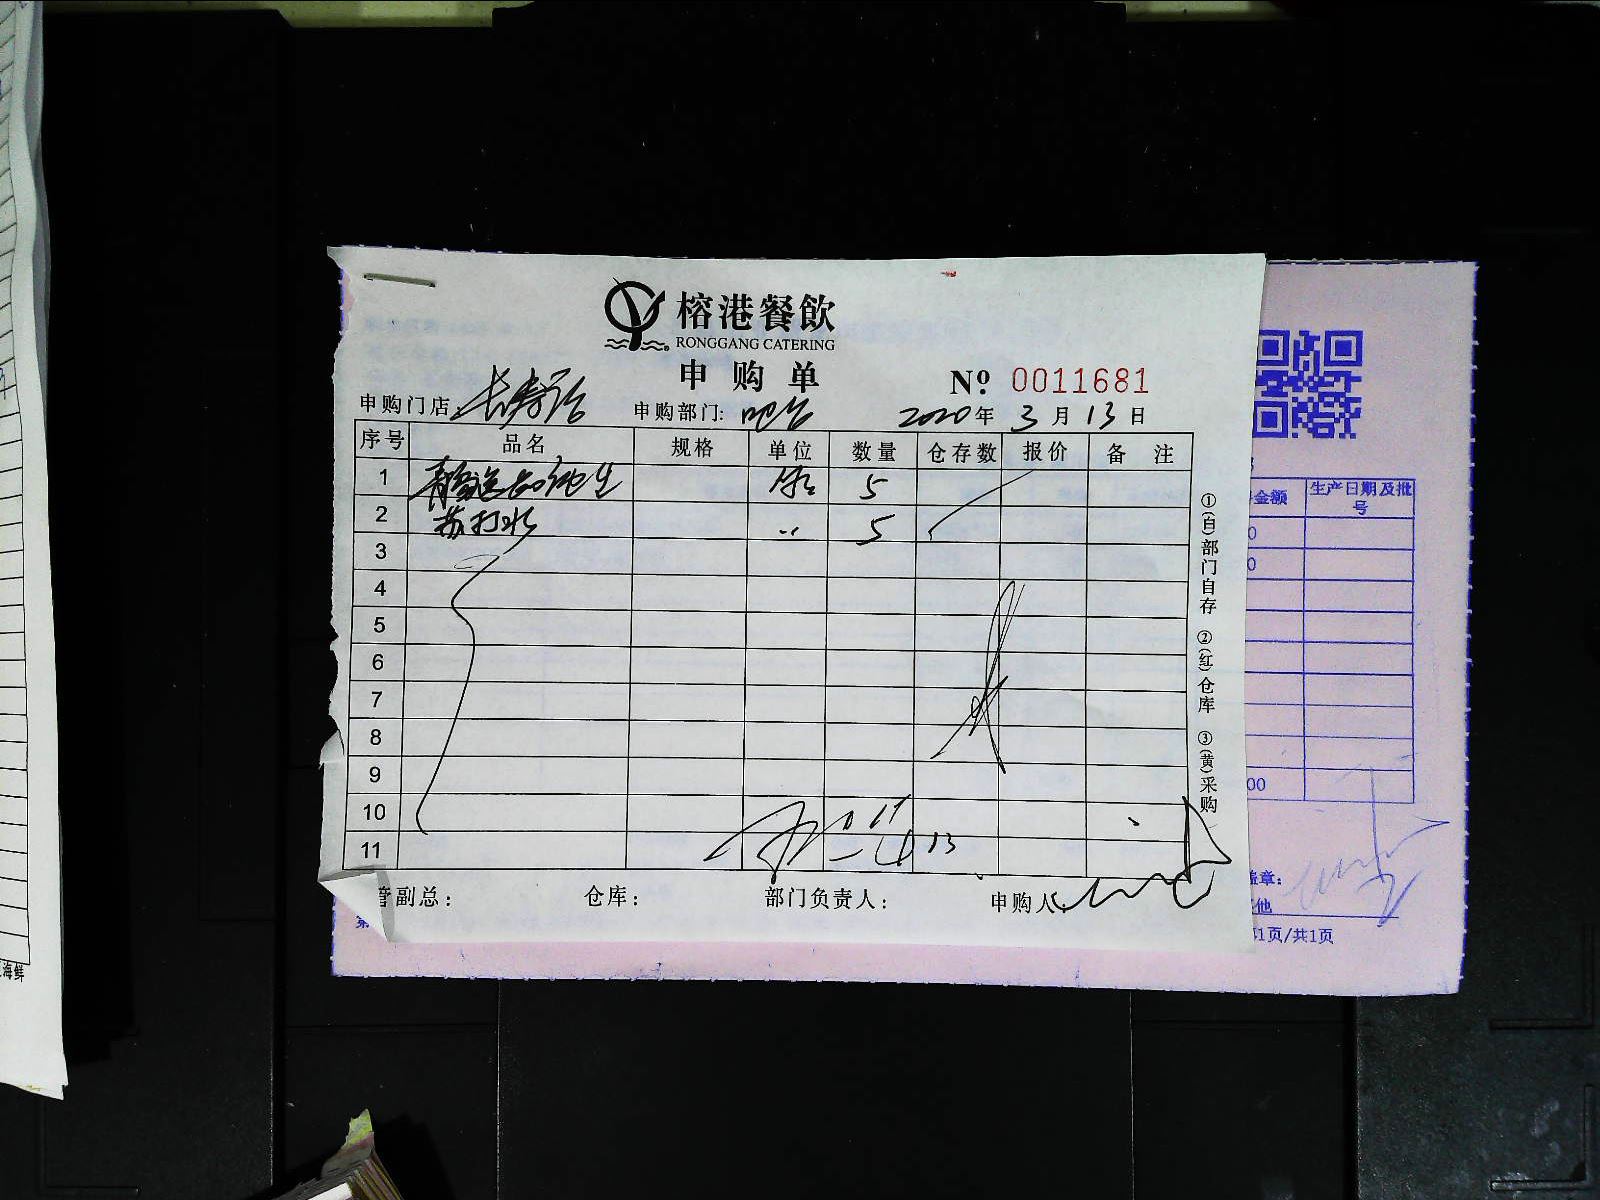 榕港餐飲
RONGGANG CATERING
申购单
Nº 0011681
申购门店: 长寿路 申购部门: 吧台 2020年3月13日
序号 品名 规格 单位 数量 仓存数 报价 备注
1 青岛逸品纯生 件 5
2 苏打水 〃 5
3
4
5
6
7
8
9
10
11
管副总: 仓库: 部门负责人: 申购人:
①(白)部门自存 ②(红)仓库 ③(黄)采购
金额 生产日期及批号
0
0
00
盖章:
他
第1页/共1页
第
海鲜